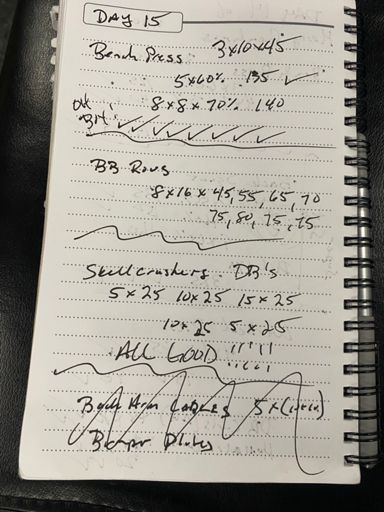 DAY 15
Bench Press 3x10x45
5x60% 135 ✓
8x8x70% 140
✓ ✓ ✓ ✓ ✓ ✓ ✓
BB Rows
8x16x45, 55, 65, 70
75, 80, 75, 75
Skullcrushers. DB's
5x25 10x25 15x25
10x25 5x25
ALL GOOD !!!!!
Cables 5x(
Bumper Plates